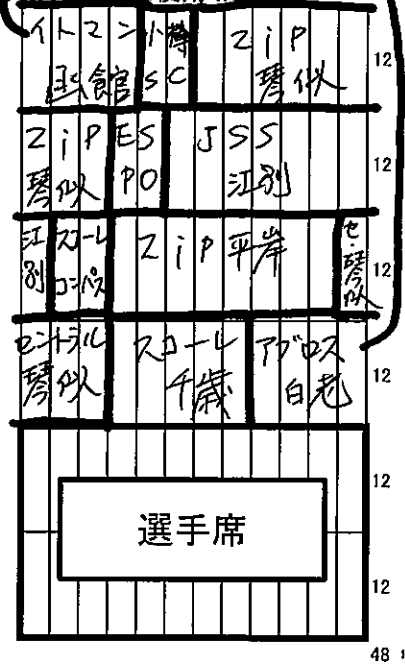 イトマン
函館
小樽
SC
Zip
琴似
12
Zip
琴似
ES
PO
JSS
江別
12
江別
スコール
コンパス
Zip平岸
セ・琴似
12
セントラル
琴似
スコール
千歳
アブロス
白老
12
選手席
12
12
48